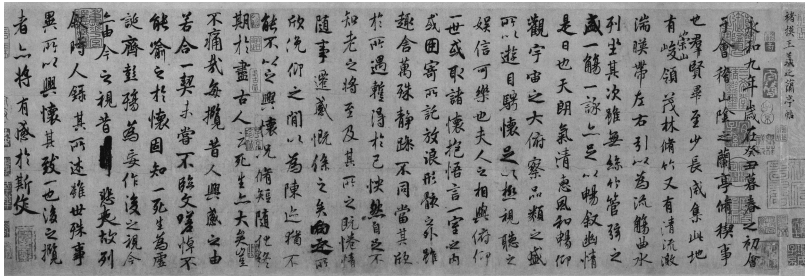 褚模王羲之蘭亭帖
永和九年歲在癸丑暮春之初會
于會稽山陰之蘭亭脩稧事
也群賢畢至少長咸集此地
有崇山峻領茂林脩竹又有清流激
湍暎帶左右引以為流觴曲水
列坐其次雖無絲竹管弦之
盛一觴一詠亦足以暢叙幽情
是日也天朗氣清惠風和暢仰
觀宇宙之大俯察品類之盛
所以遊目騁懷足以極視聽之
娛信可樂也夫人之相與俯仰
一世或取諸懷抱悟言一室之內
或因寄所託放浪形骸之外雖
趣舍萬殊靜躁不同當其欣
於所遇蹔得於己快然自足不
知老之將至及其所之既惓情
隨事遷感慨係之矣向之所
欣俛仰之閒以為陳迹猶不
能不以之興懷況脩短隨化終
期於盡古人云死生亦大矣豈
不痛哉每攬昔人興感之由
若合一契未嘗不臨文嗟悼不
能喻之於懷固知一死生為虛
誕齊彭殤為妄作後之視今
亦由今之視昔悲夫故列
敘時人錄其所述雖世殊事
異所以興懷其致一也後之攬
者亦將有感於斯文